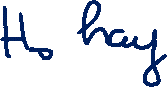 Ho hay